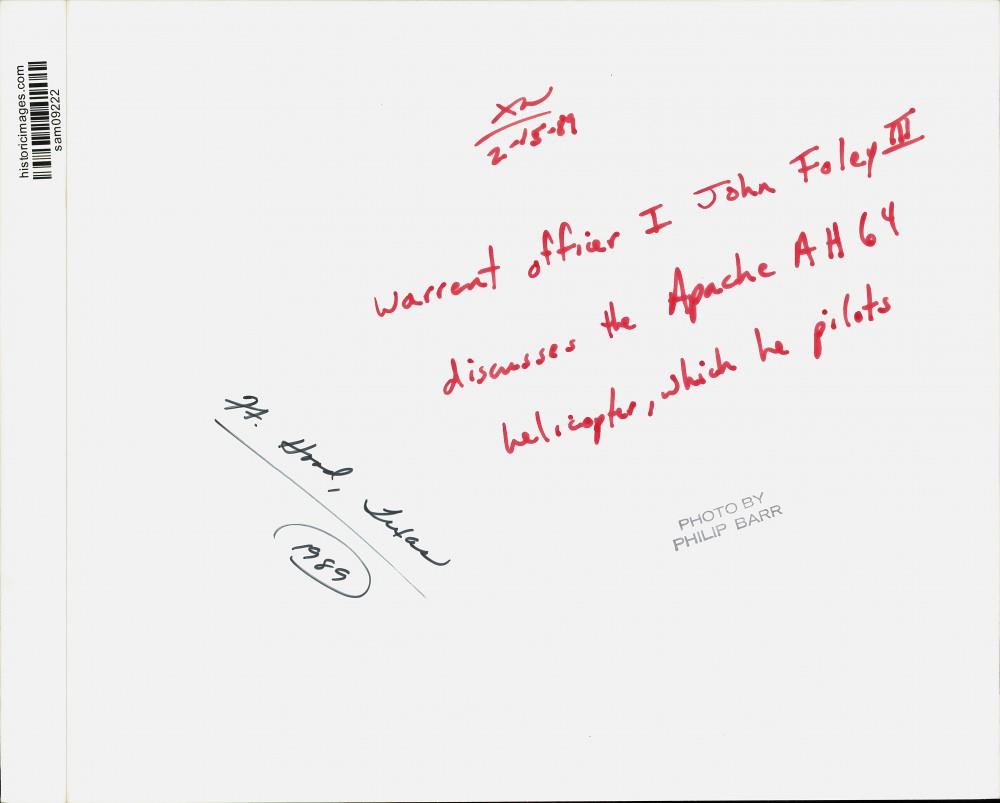 historicimages.com
sam09222
2-15-89
warrent officer I John Foley III
discusses the Apache AH 64
helicopter, which he pilots
Ft. Hood, Texas
1989
PHOTO BY
PHILIP BARR